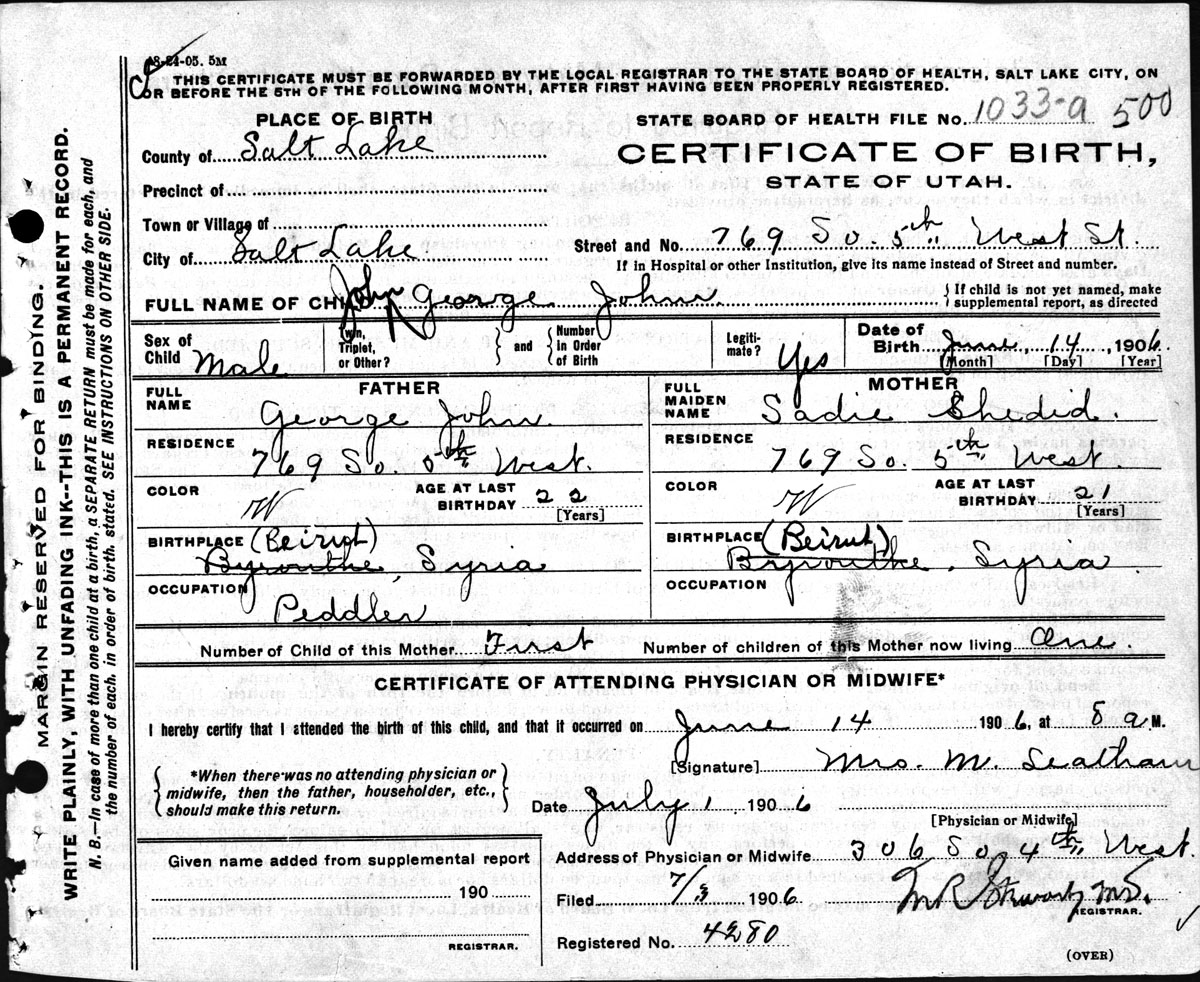 18-24-05. 5M
THIS CERTIFICATE MUST BE FORWARDED BY THE LOCAL REGISTRAR TO THE STATE BOARD OF HEALTH, SALT LAKE CITY, ON
OR BEFORE THE 5TH OF THE FOLLOWING MONTH, AFTER FIRST HAVING BEEN PROPERLY REGISTERED.
PLACE OF BIRTH
STATE BOARD OF HEALTH FILE No. 1033-a 500
County of Salt Lake
CERTIFICATE OF BIRTH,
STATE OF UTAH.
Precinct of
Town or Village of
City of Salt Lake
Street and No. 769 So. 5th West St.
If in Hospital or other Institution, give its name instead of Street and number.
FULL NAME OF CHILD John George John
If child is not yet named, make
supplemental report, as directed
Sex of
Child Male
Twin,
Triplet,
or Other?
and
Number
in Order
of Birth
Legiti-
mate? Yes
Date of
Birth June 14, 1906
[Month] [Day] [Year]
FATHER
FULL
NAME
George John
RESIDENCE
769 So. 5th West.
COLOR
W
AGE AT LAST
BIRTHDAY 22
[Years]
BIRTHPLACE (Beirut)
Byrouthe, Syria
OCCUPATION
Peddler
MOTHER
FULL
MAIDEN
NAME
Sadie Sheded.
RESIDENCE
769 So. 5th West.
COLOR
W
AGE AT LAST
BIRTHDAY 21
[Years]
BIRTHPLACE (Beirut)
Byrouthe, Syria
OCCUPATION
Number of Child of this Mother First
Number of children of this Mother now living One.
CERTIFICATE OF ATTENDING PHYSICIAN OR MIDWIFE*
I hereby certify that I attended the birth of this child, and that it occurred on June 14 1906, at 8 a M.
*When there was no attending physician or
midwife, then the father, householder, etc.,
should make this return.
[Signature] Mrs. M.
Date July 1 1906
[Physician or Midwife]
Given name added from supplemental report
190
REGISTRAR.
Address of Physician or Midwife 306 So 4th West.
Filed 7/3 1906
REGISTRAR.
Registered No. 4280
(OVER)
MARGIN RESERVED FOR BINDING.
WRITE PLAINLY, WITH UNFADING INK--THIS IS A PERMANENT RECORD.
N. B.—In case of more than one child at a birth, a SEPARATE RETURN must be made for each, and
the number of each, in order of birth, stated. SEE INSTRUCTIONS ON OTHER SIDE.